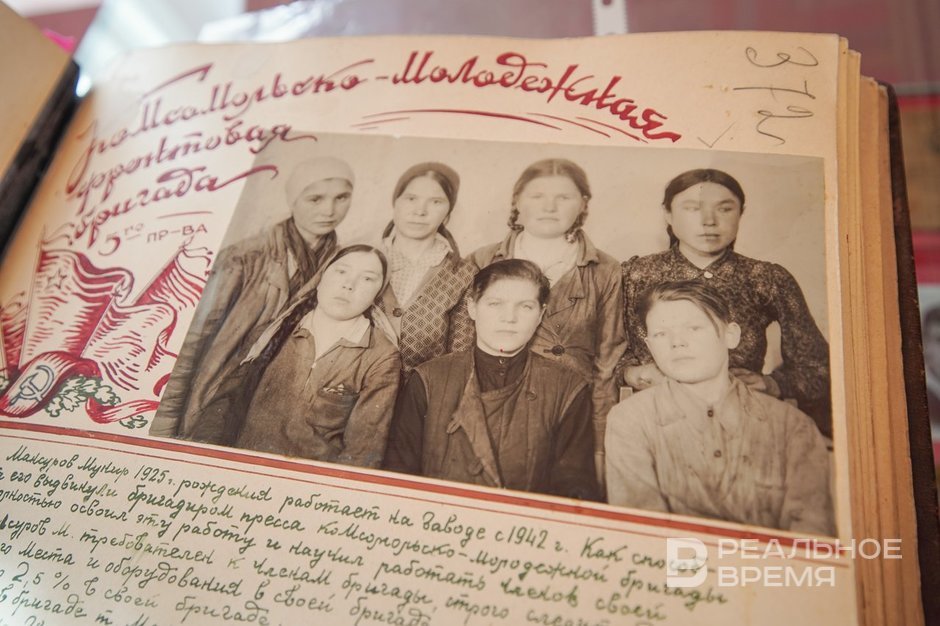 372
Комсомольско-Молодежная
фронтовая
бригада
5го ПР-ВА
Мансуров Мунир 1925 г. рождения работает на заводе с 1942 г. Как способ
его выдвинули бригадиром пресса комсомольско-молодежной бригады
ностью освоил эту работу и научил работать членов своей
суров М. требователен к членам бригады, строго следит
места и оборудования в своей бригаде
2,5 % в своей бригаде
в бригаде т.
РЕАЛЬНОЕ
ВРЕМЯ